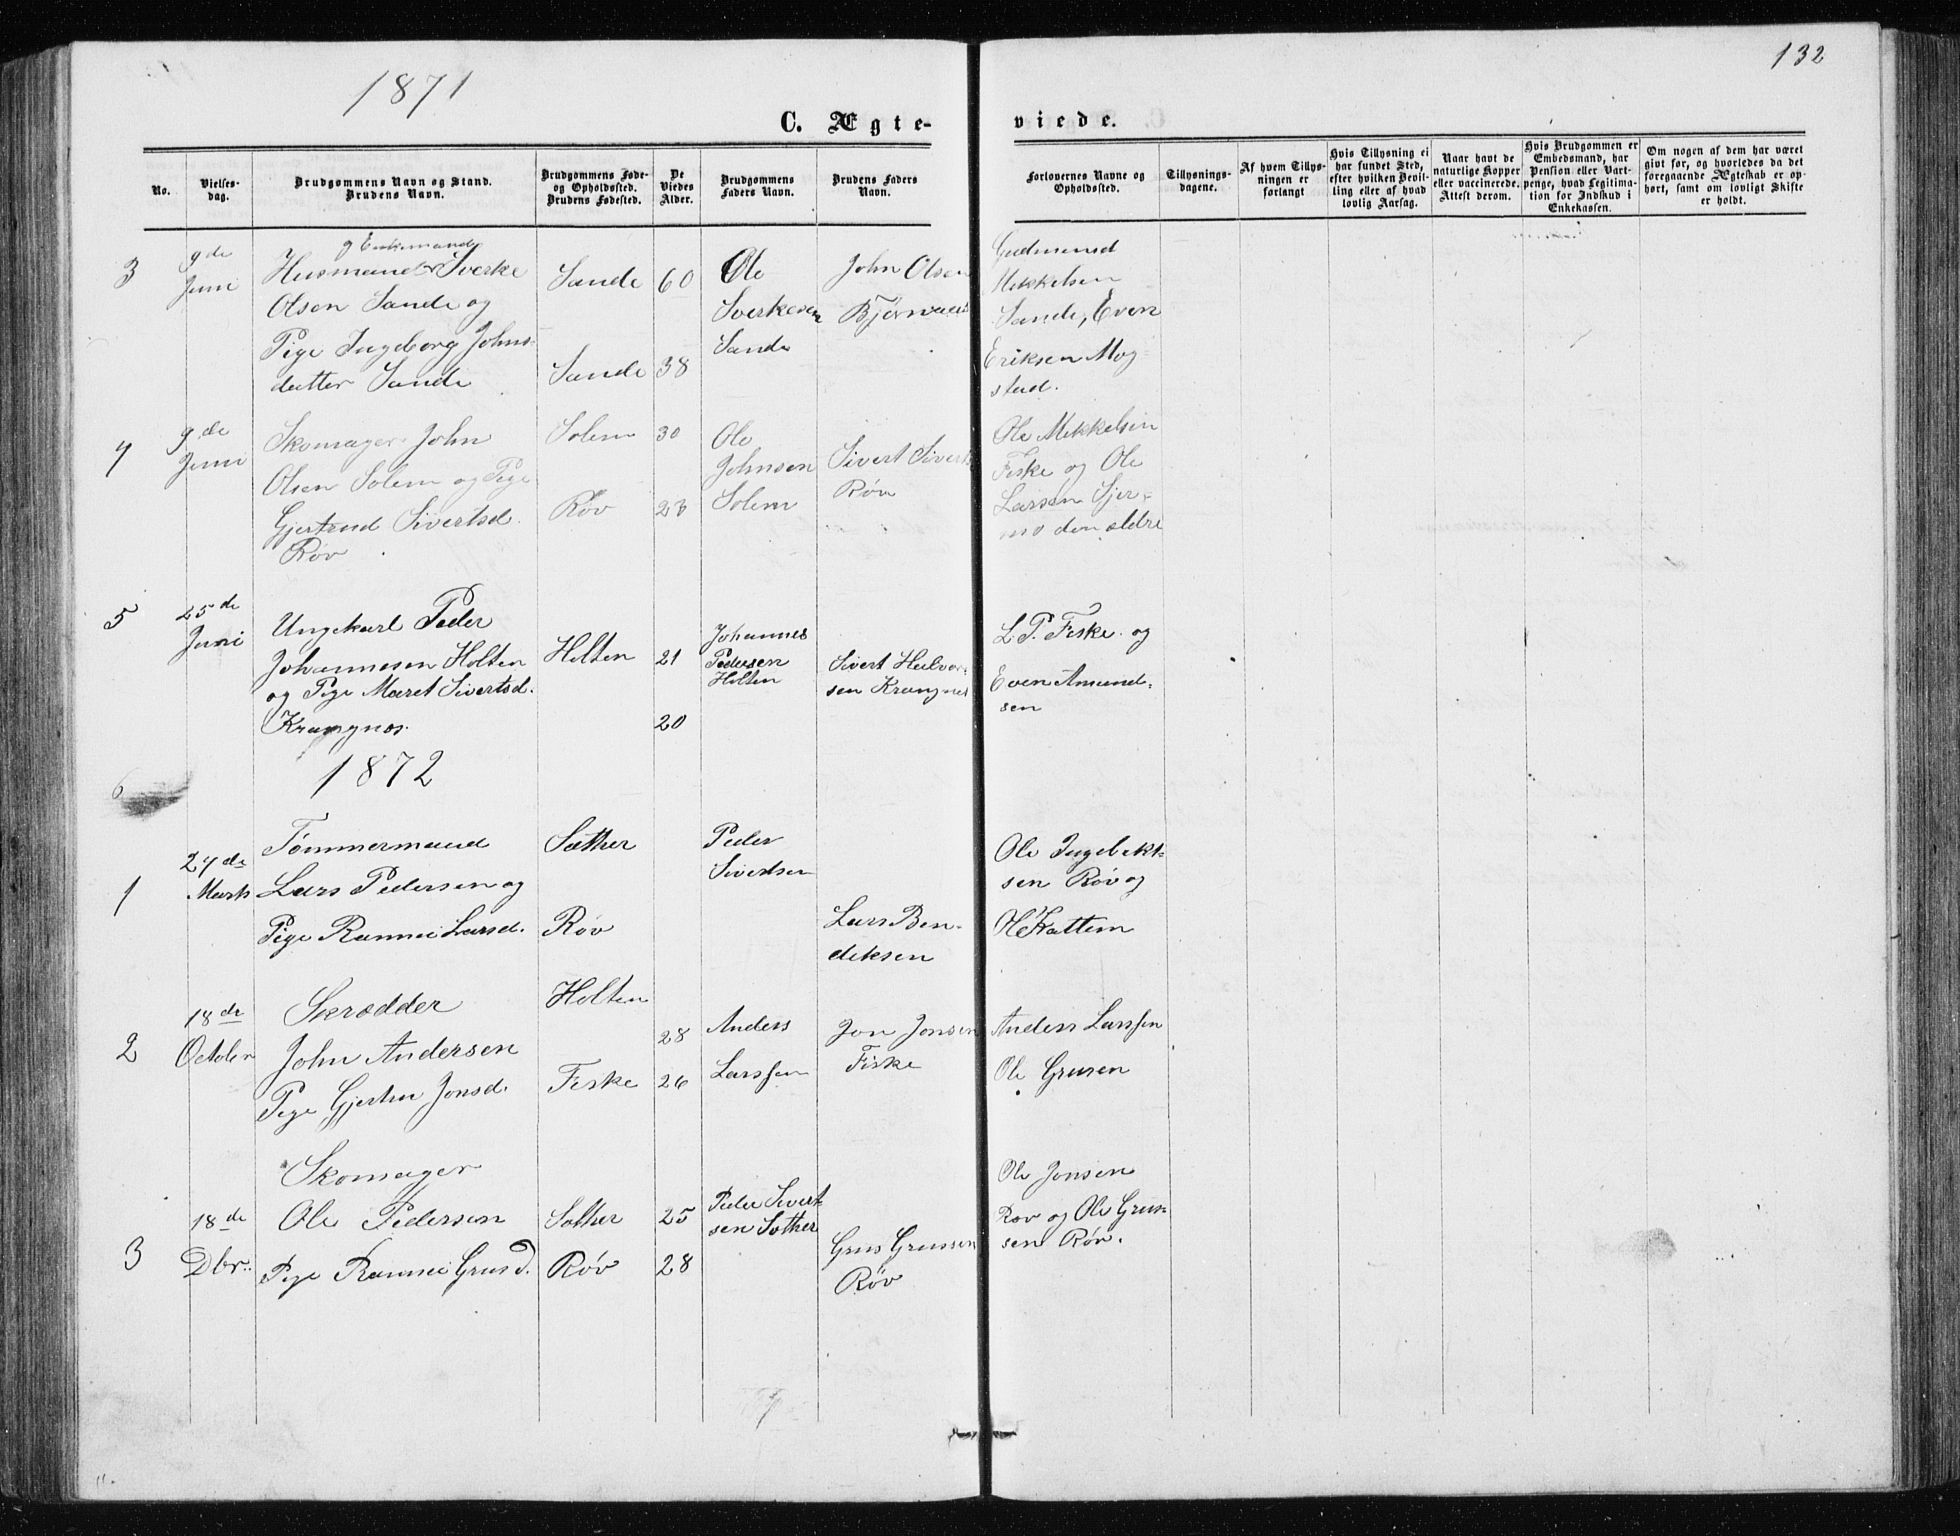 132
1871
C. Ægte-
viede.
No.
Vielses-
dag.
Brudgommens Navn og Stand.
Brudens Navn.
Brudgommens Føde-
og Opholdssted.
Brudens Fødested.
De
Viedes
Alder.
Brudgommens
Faders Navn.
Brudens Faders
Navn.
Forlovernes Navne og
Opholdssted.
Tillysnings-
dagene.
Af hvem Tillys-
ningen er
forlangt
Hvis Tillysning ei
har fundet Sted,
efter hvilken Bevil-
ling eller af hvad
lovlig Aarsag.
Naar havt de
naturlige Kopper
eller vaccinerede.
Attest derom.
Hvis Brudgommen er
Embedsmand, har
Pension eller Vart-
penge, hvad Legitima-
tion for Indskud i
Enkekassen.
Om nogen af dem har været
givt før, og hvorledes da det
foregaaende Ægteskab er op-
hørt, samt om lovligt Skifte
er holdt.
3
9de
Juni
g Enkemand
Husmand Sverke
Olsen Sande og
Pige Ingeborg Johns-
datter Sande
Sande
Sande
60
38
Ole
Sverkesen
Sande
John Olsen
Gudmund
Mikkelsen
Sande, Even
Eriksen Mog-
stad.
4
9de
Juni
Skomager John
Olsen Solem og Pige
Gjertrud Sivertsd.
Røv
Solem
Røv
30
23
Ole
Johnsen
Solem
Sivert Siverts
Røv
Ole Mikkelsen
Fiske og Ole
Larsen Sjer-
mo den ældre
5
25de
Juni
Ungekarl Peder
Johannesen Holten
og Pige Maret Sivertsd.
Krangnes.
Holten
21
20
Johannes
Pedersen
Holten
Sivert Halvor-
sen Krangnes
L. P. Fiske og
Even Amund-
sen
6
1872
1
27de
Marts
Tømmermand
Lars Pedersen og
Pige Rannei Larsd.
Sæther
Røv
Peder
Sivertsen
Lars Ben-
diksen
Ole Ingebrikt-
sen Røv og
Ole Kattem
2
18de
October
Skrædder
John Andersen
Pige Gjertru Jonsd.
Holten
Fiske
28
26
Anders
Larssen
Jon Jonsen
Fiske
Anders Larssen
Ole Grusen
3
18de
Dbr.
Skomager
Ole Pedersen
Pige Rannei Grusd.
Sæther
Røv
25
28
Peder Sivert-
sen Sæther
Grus Grussen
Røv
Ole Jonsen
Røv og Ole Grus-
sen Røv.